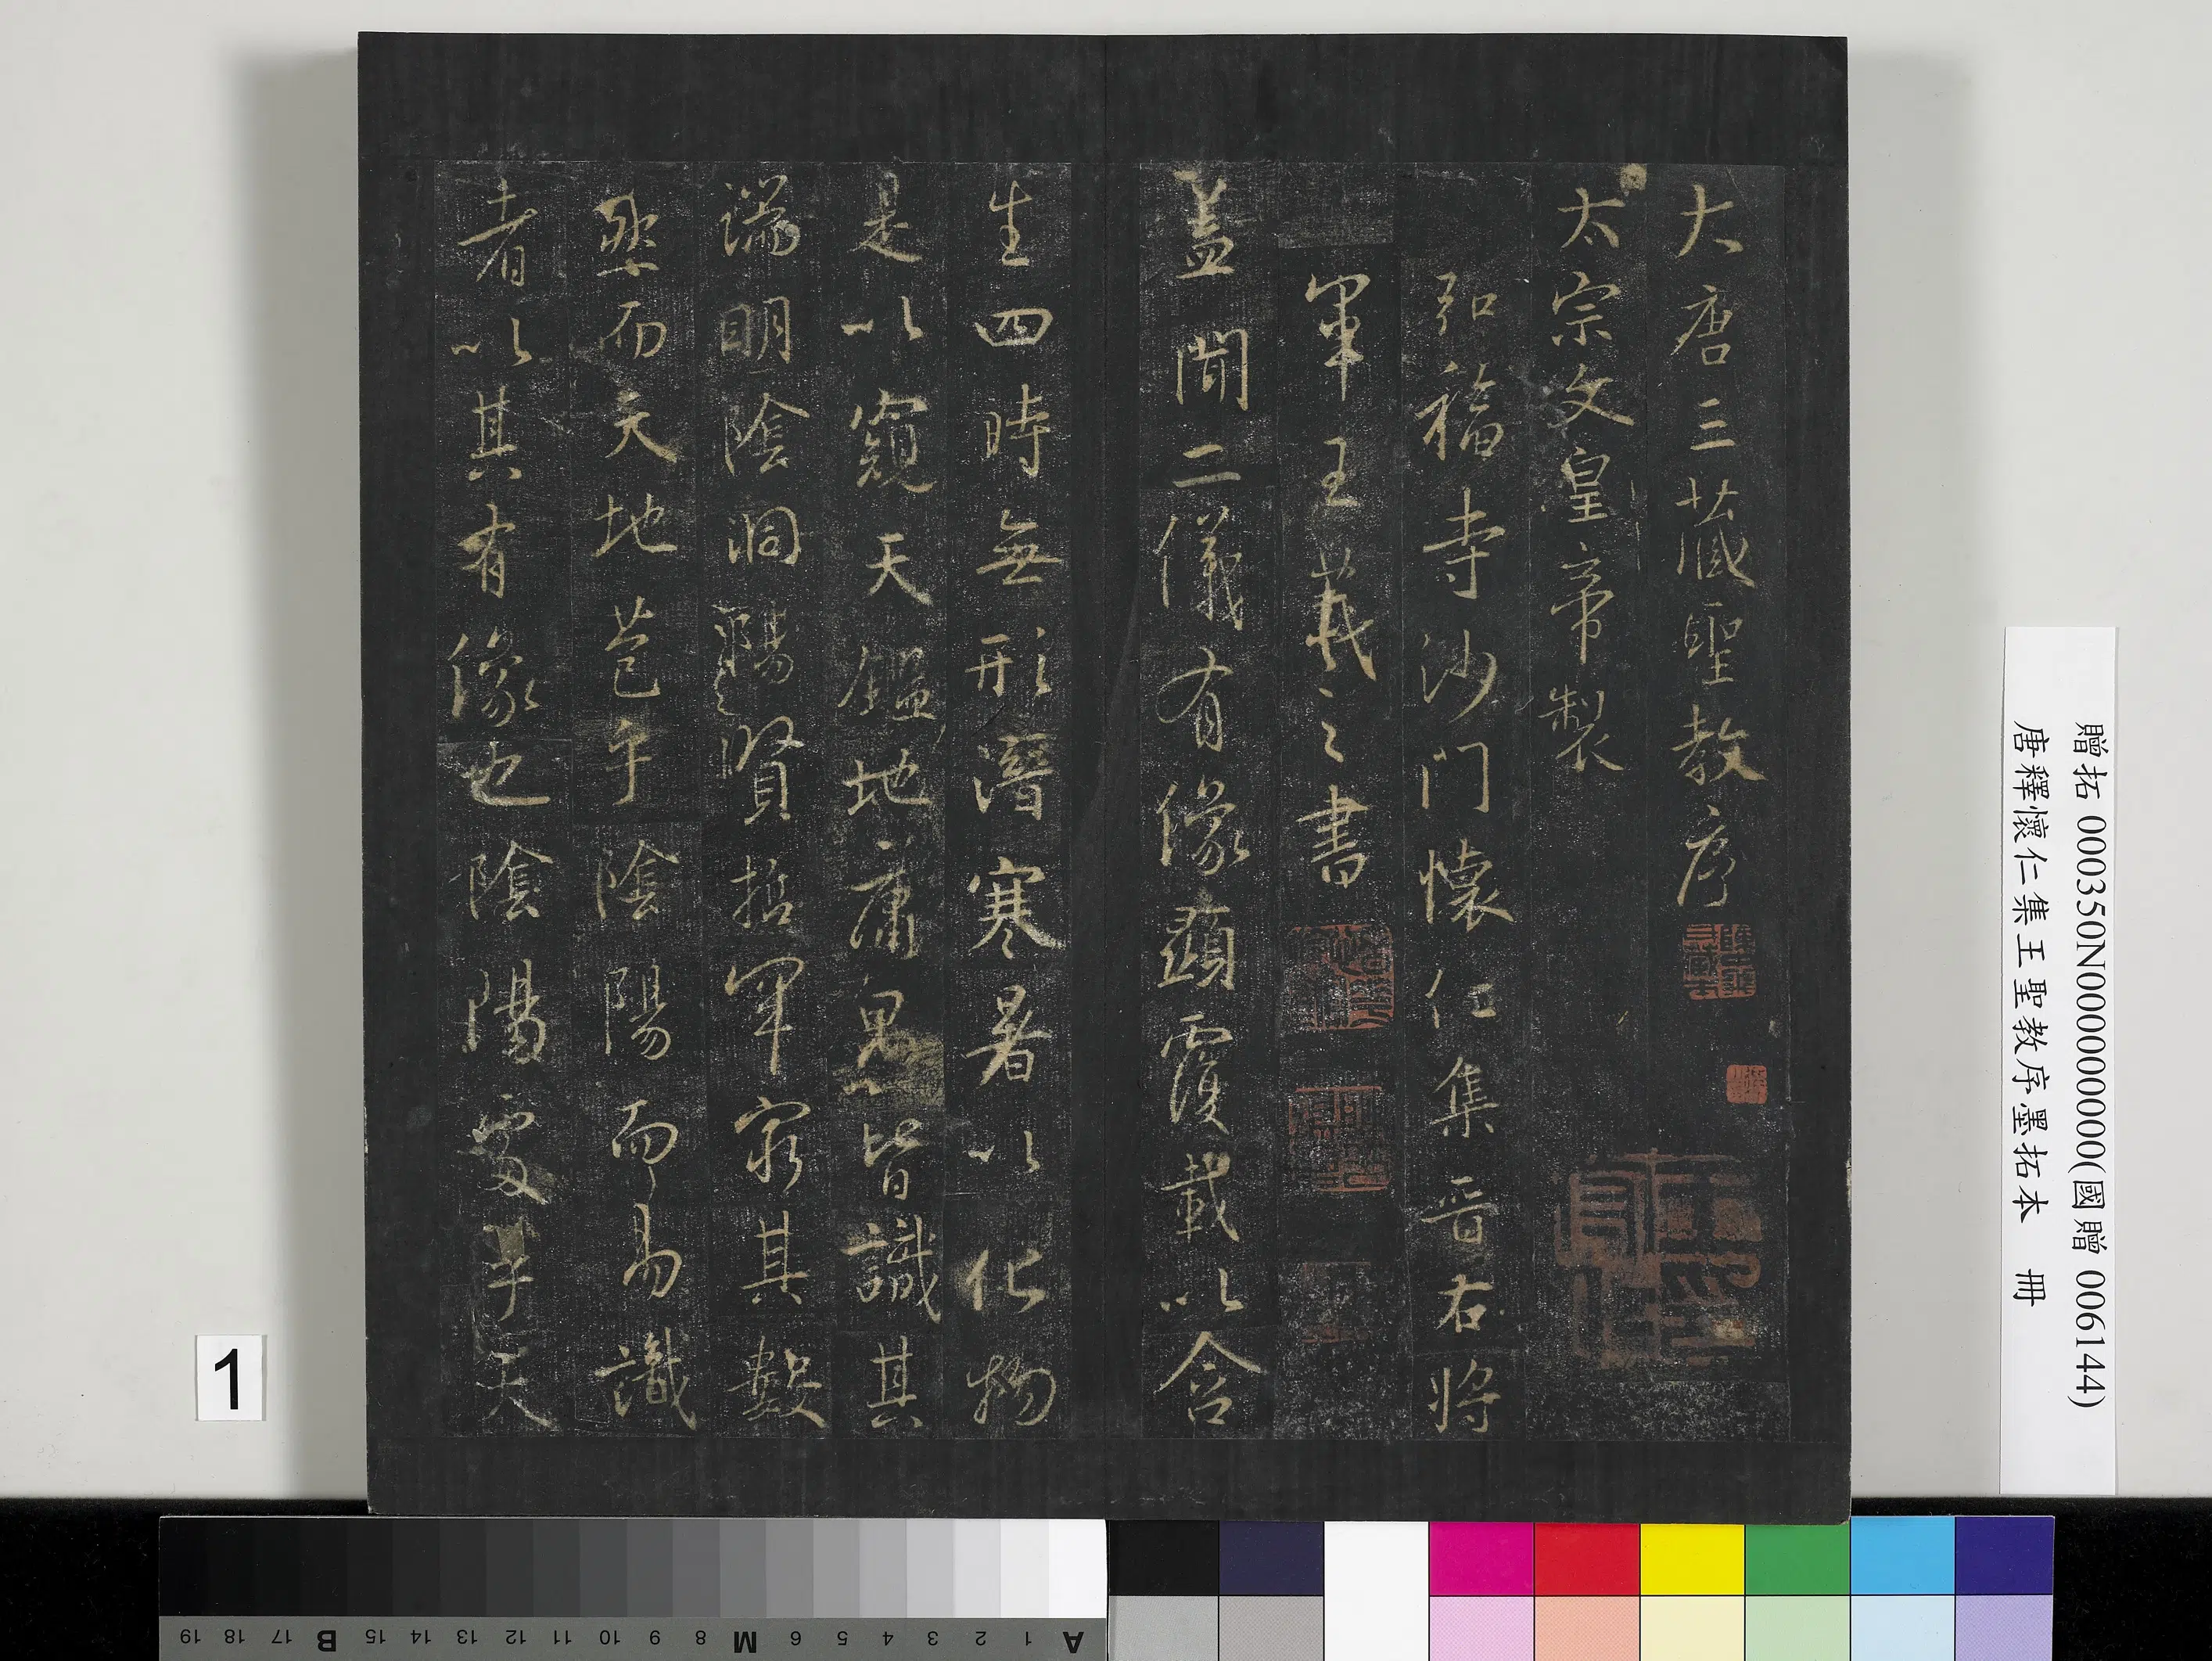 大唐三藏聖教序
太宗文皇帝製
弘福寺沙門懷仁集晉右將
軍王羲之書
蓋聞二儀有像顯覆載以含
生四時無形潛寒暑以化物
是以窺天鑑地庸愚皆識其
端明陰洞陽賢哲罕窮其數
然而天地苞乎陰陽而易識
者以其有像也陰陽處乎天
贈拓 000350N000000000(國贈 006144)
唐釋懷仁集王聖教序墨拓本 冊
1
A 1 2 3 4 5 6 M 8 9 10 11 12 13 14 15 B 17 18 19